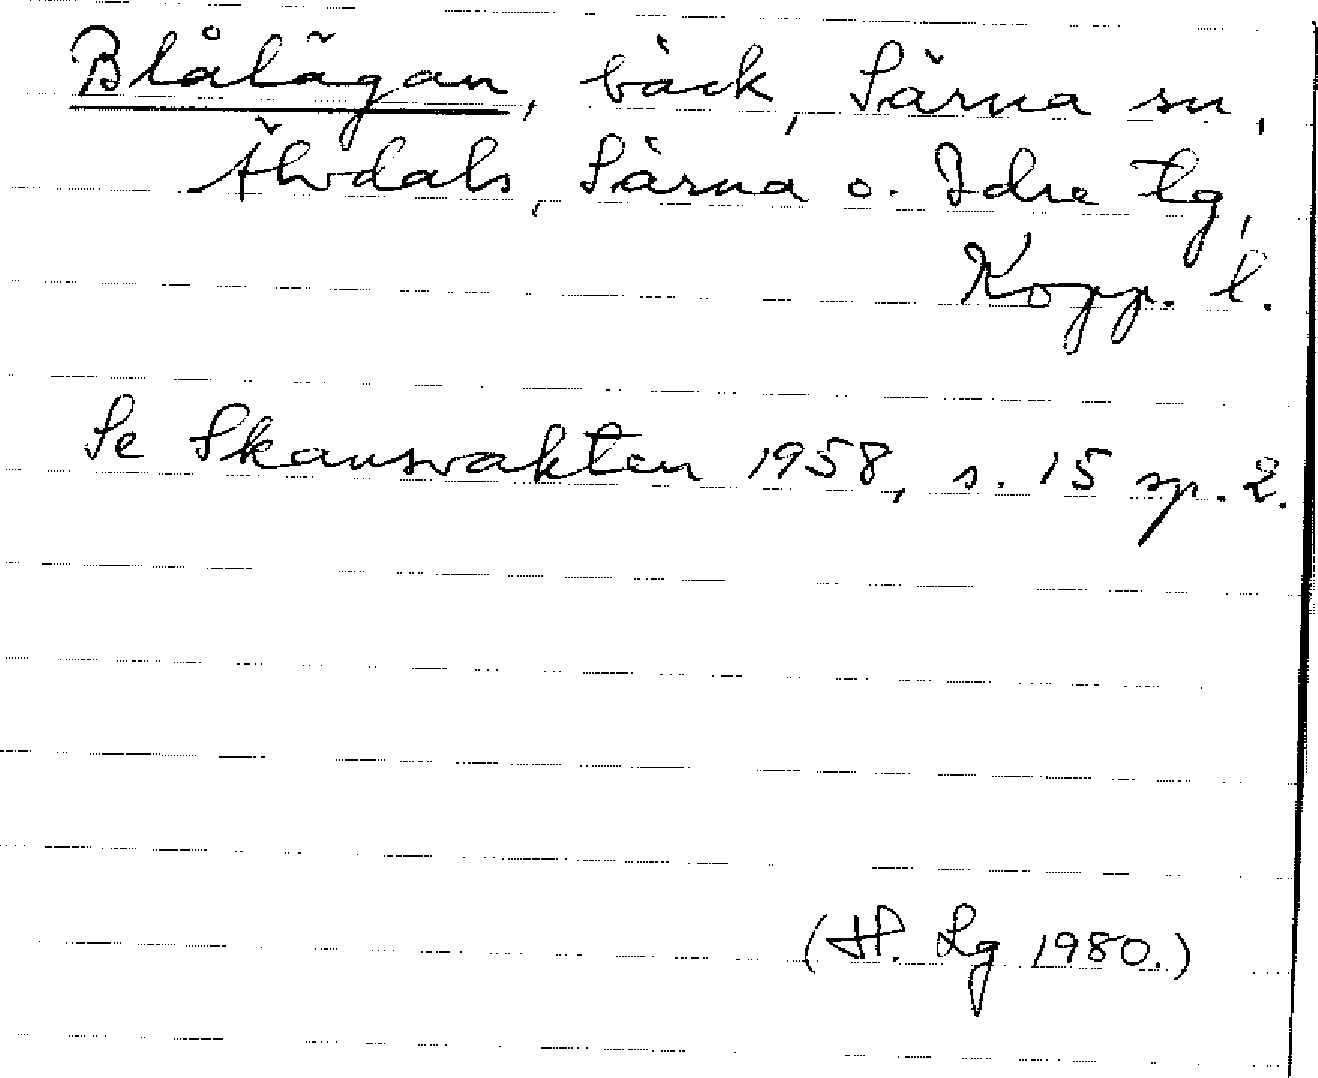 Blålägan, bäck, Särna sn,
Älvdals, Särna o. Idre tg,
Kopp. l.
Se Skansvakten 1958, s. 15 sp. 2.
(H. Lg 1980.)